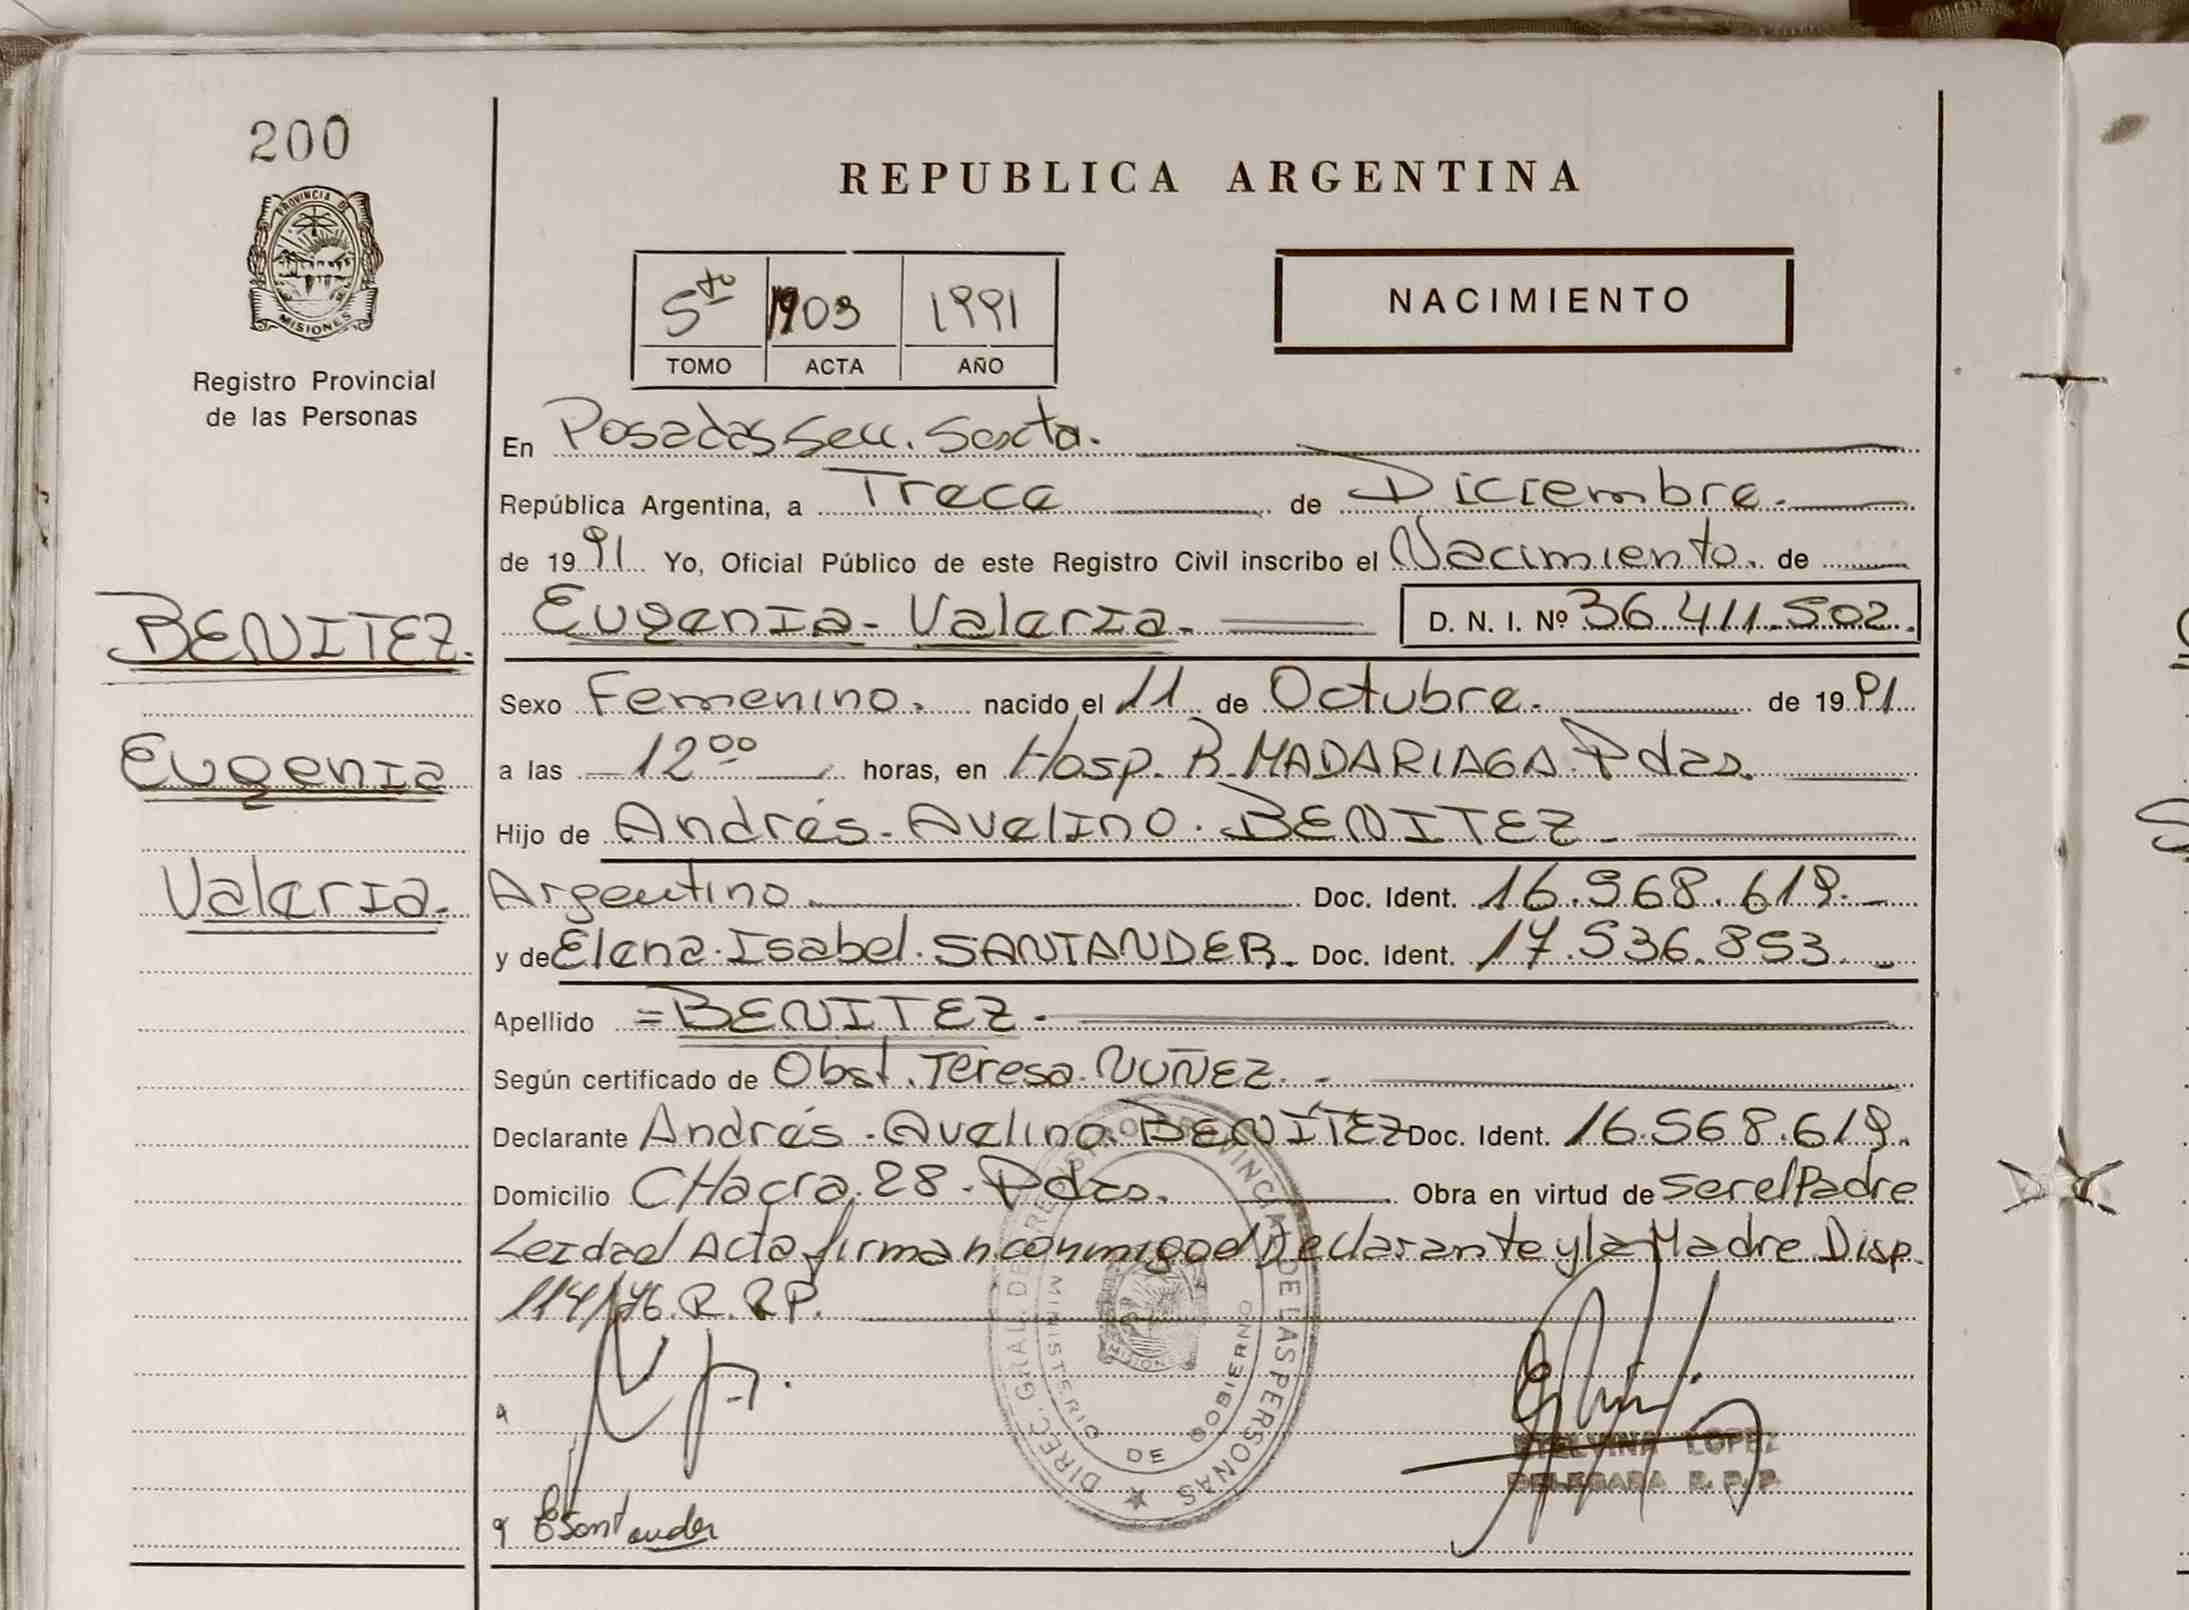 200
PROVINCIA DE
MISIONES
Registro Provincial
de las Personas
BENITEZ.
Eugenia
Valeria.
REPUBLICA ARGENTINA
5to 1903 1991
TOMO ACTA AÑO
NACIMIENTO
En Posadas Secc. Sexta.
República Argentina, a Trece de Diciembre.
de 1991 Yo, Oficial Público de este Registro Civil inscribo el Nacimiento. de
Eugenia - Valeria. D. N. I. Nº 36.411.502.
Sexo Femenino. nacido el 11 de Octubre. de 1991
a las 12 00 horas, en Hosp. R. MADARIAGA Pdas.
Hijo de Andrés - Avelino. BENITEZ
Argentino. Doc. Ident. 16.568.619.
y de Elena. Isabel. SANTANDER. Doc. Ident. 17.536.853.
Apellido = BENITEZ.
Según certificado de Obst. Teresa. NUÑEZ.
Declarante Andrés - Avelino. BENÍTEZ Doc. Ident. 16.568.619.
Domicilio CHacra. 28 - Pdas. Obra en virtud de ser el Padre
Leida el Acta firman conmigo el Declarante y la Madre Disp.
114/76. R. R P.
ESantander
STELVINA LOPEZ
DELEGADA R. P. P.
DIREC. GRAL. DE REGISTRO PROVINCIAL DE LAS PERSONAS
MINISTERIO DE GOBIERNO
MISIONES